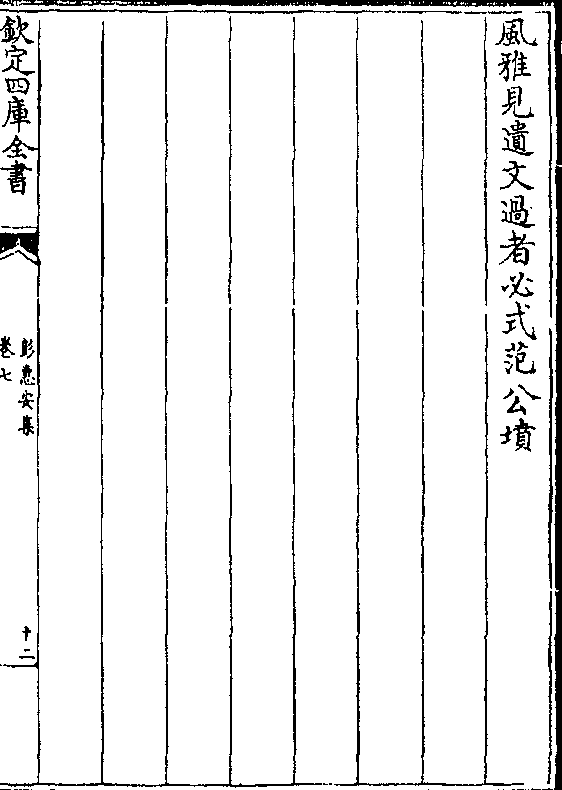 風雅見遺文過者必式范公墳
欽定四庫全書
彭惠安集
卷七
十二